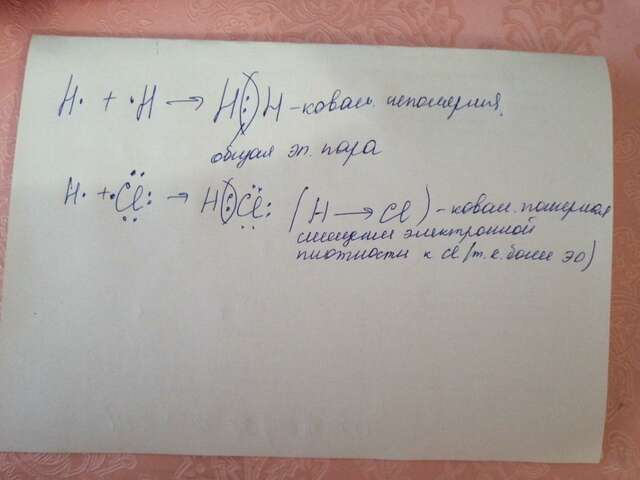 H· + ·H → H : H – ковал. неполярная.
общая эл. пара
H· + ·Cl: → H : Cl: (H → Cl) – ковал. полярная
смещение электронной
плотности к Cl (т.к. более ЭО)